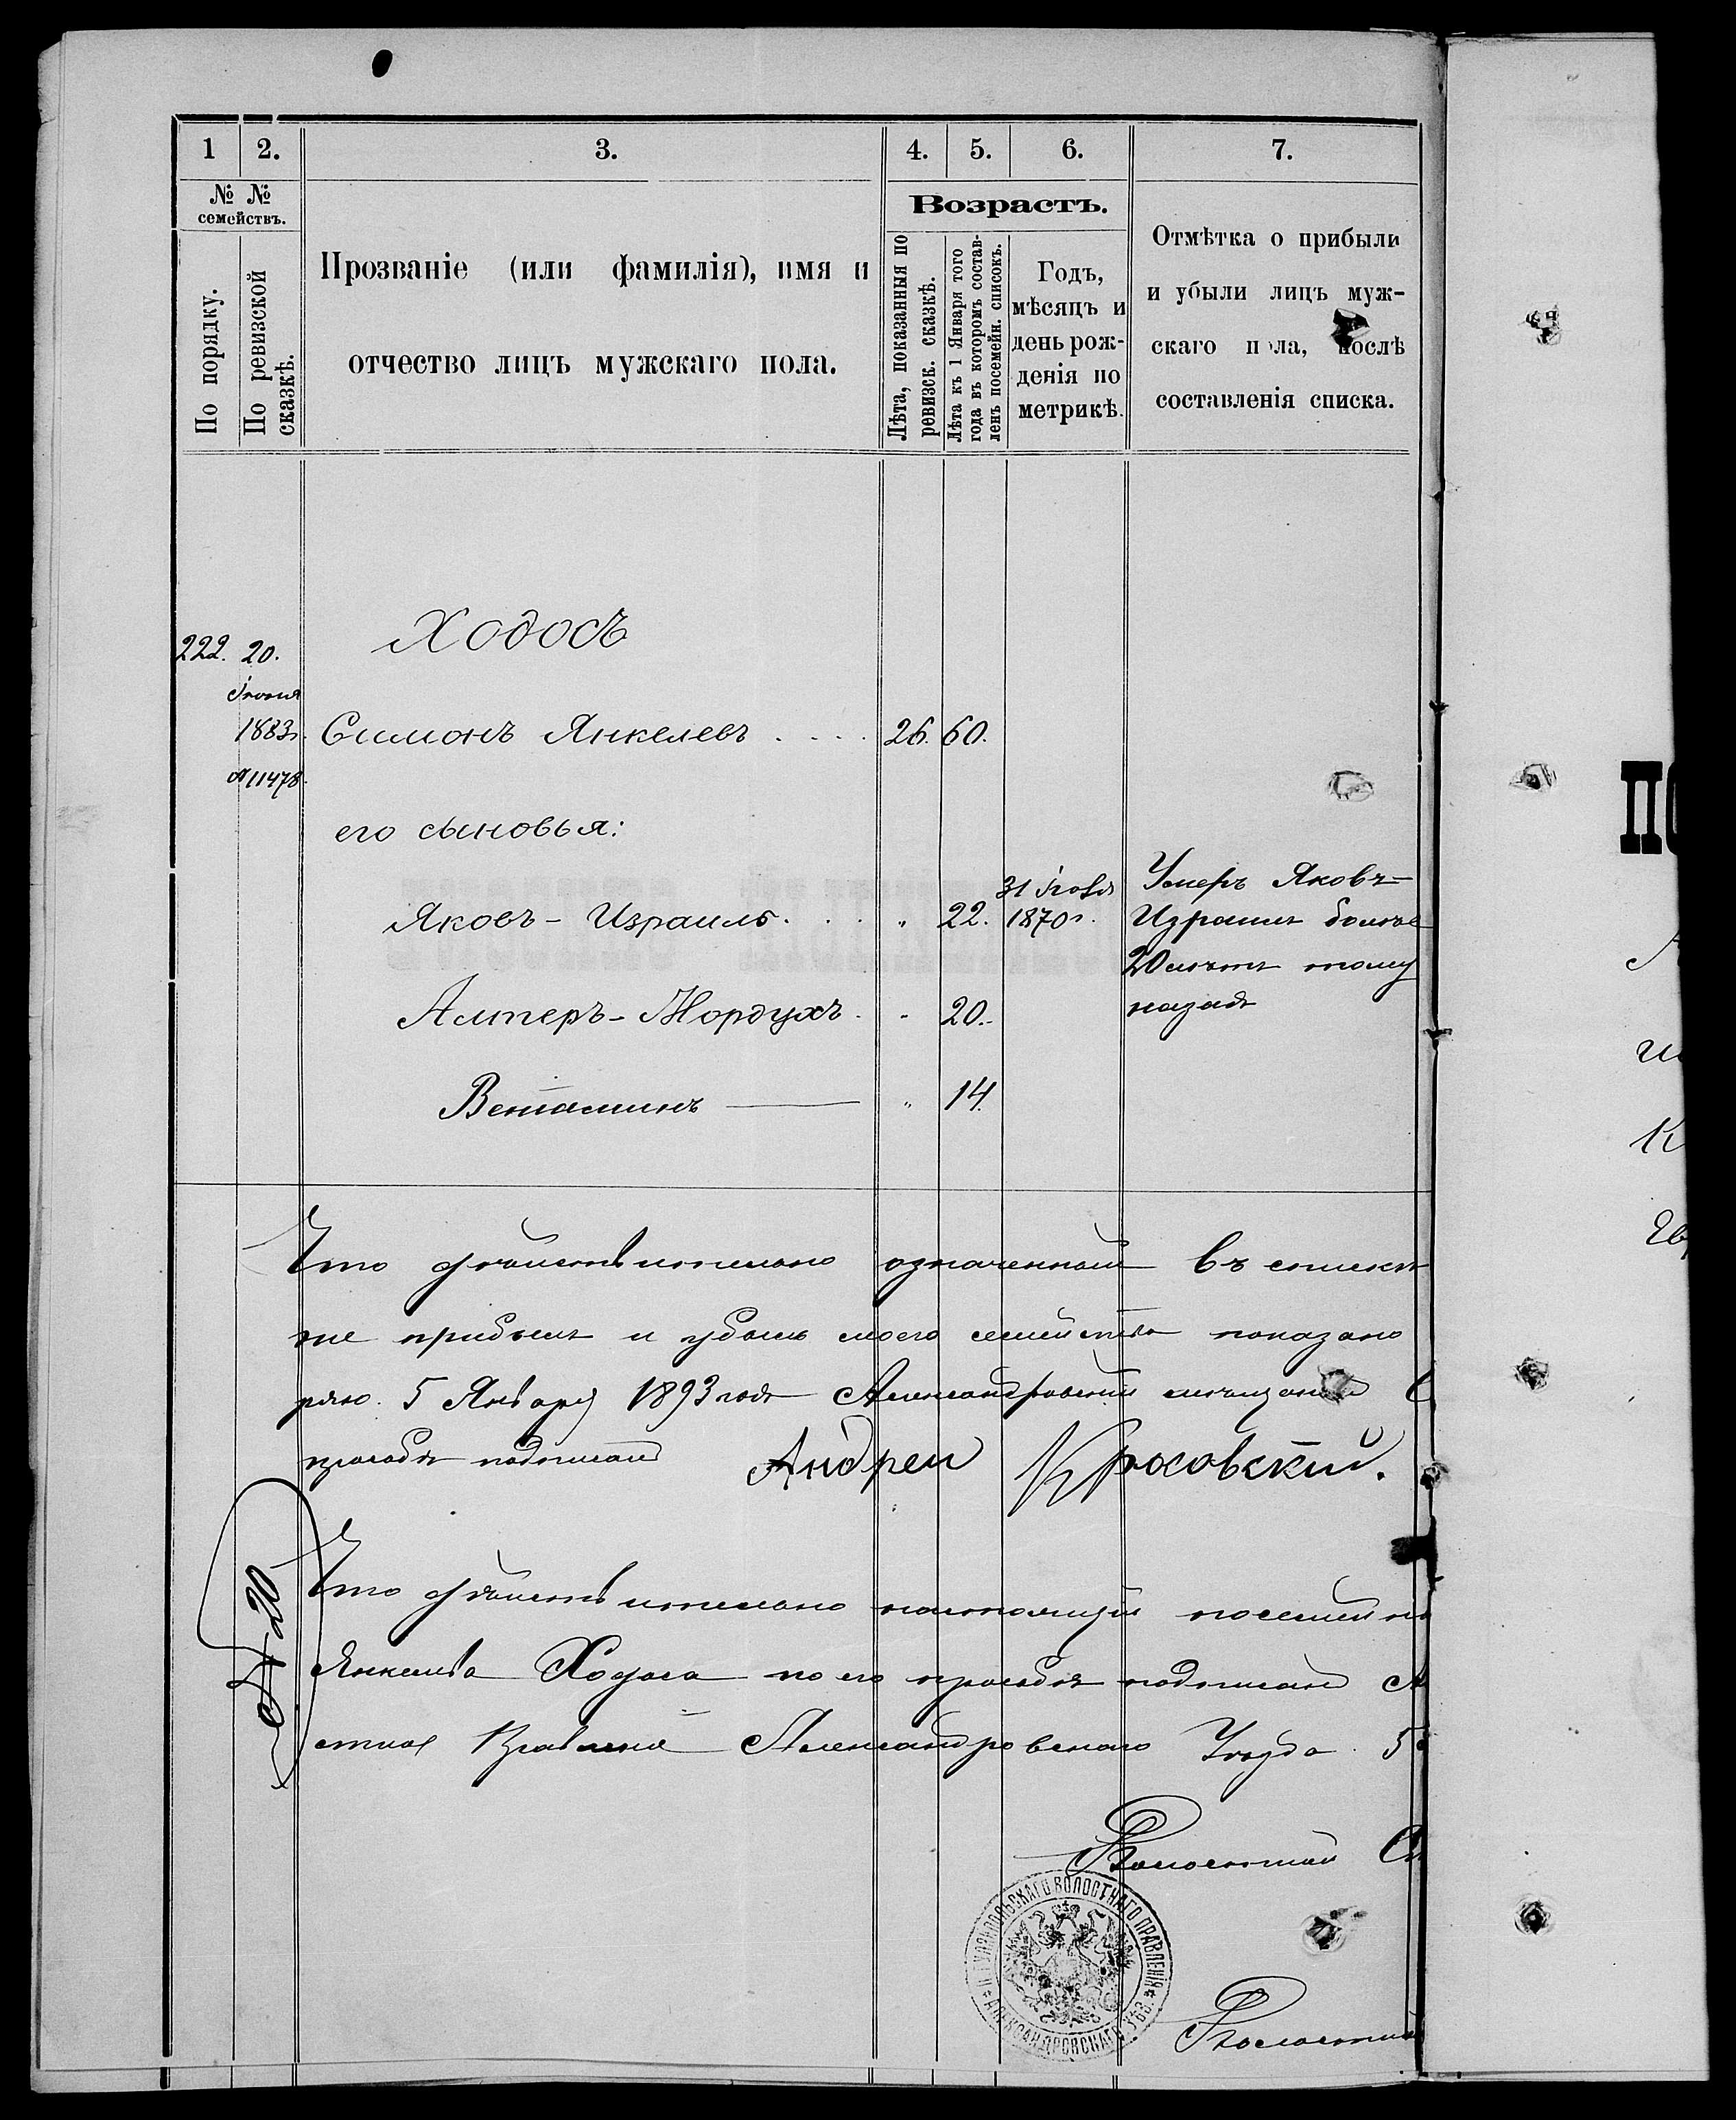 1 2. 3. 4. 5. 6. 7.
№ № семействъ.
По порядку.
По ревизской сказкѣ.
Прозваніе (или фамилія), имя и
отчество лицъ мужскаго пола.
Возрастъ.
Лѣта, показанныя по
ревизск. сказкѣ.
Лѣта къ 1 Января того
года въ которомъ состав-
ленъ посемейн. списокъ.
Годъ,
мѣсяцъ и
день рож-
денія по
метрикѣ.
Отмѣтка о прибыли
и убыли лицъ муж-
скаго пола, послѣ
составленія списка.
222. 20. Ходосъ
Іюня
1883г. Симонъ Янкелевъ . . . . 26. 60.
№ 11478.
его сыновья:
Яковъ - Израиль. . . " 22. 31 Іюля 1870г.
Умеръ Яковъ-
Израиль болѣе
20 лѣтъ тому
назадъ
Алтеръ - Мордухъ. " 20.
Веніаминъ " 14.
Что дѣйствительно означенной въ списке
же прибыль и убыль моего семейства показано
ряю. 5 Января 1893 года Александровскій мѣщанинъ
просьбѣ подписалъ Андрей
Что дѣйствительно настоящій посемейн
Янкелева Ходоса по его просьбѣ подписалъ А
стное Правленіе Александровскаго Уѣзда. 5
№ 20
Волостной
ГУЛЯЙПОЛЬСКАГО ВОЛОСТНАГО ПРАВЛЕНІЯ * АЛЕКСАНДРОВСКАГО УѢЗ. *
Волостной
ПО